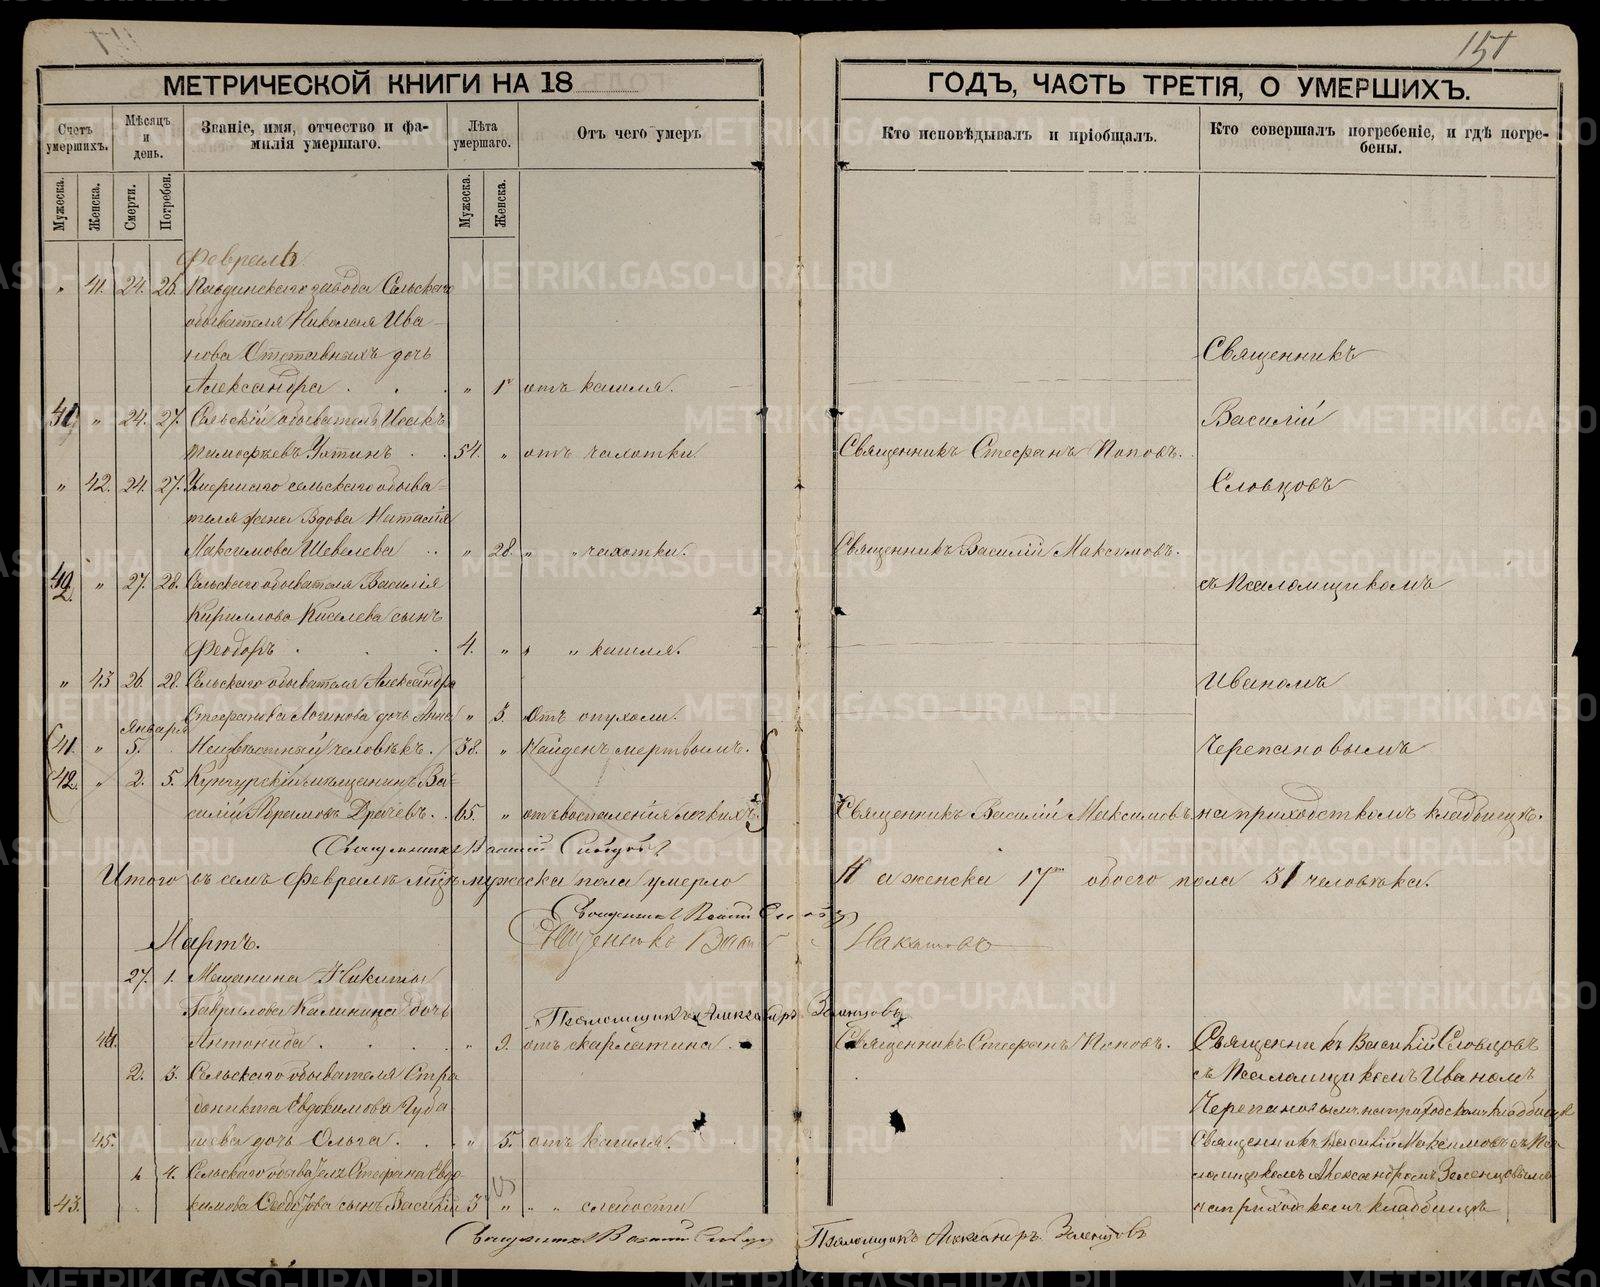 151
МЕТРИЧЕСКОЙ КНИГИ НА 18
ГОДЪ, ЧАСТЬ ТРЕТІЯ, О УМЕРШИХЪ.
Счетъ умершихъ.
Мѣсяцъ и день.
Званіе, имя, отчество и фа-
милія умершаго.
Лѣта умершаго.
Отъ чего умеръ
Кто исповѣдывалъ и пріобщалъ.
Кто совершалъ погребеніе, и гдѣ погре-
бены.
Мужеска. Женска. Смерти. Погребен. Мужеска. Женска.
Февраль
„ 41. 24. 26. завода Сельскаго
обывателя Николая Ива-
нова дочь
Александра . . . „ 1г отъ кашля.
Священникъ
41 „ 24. 27. Сельскій обыватель Исакъ
Василій
Тимофѣевъ Ухтинъ . . 54. „ отъ чахотки Священникъ Стефанъ Поповъ.
„ 42. 24. 27. Умершаго сельскаго обыва-
Словцовъ
теля жена вдова Наталія
Максимова Шевелева .. „ 28. „ „ чахотки. Священникъ Василій Максимовъ.
42. „ 27. 28. Сельскаго обывателя Василія
съ Псаломщикомъ
Кириллова Киселева сынъ
Феодоръ . . . 4. „ „ „ кашля.
„ 43 26. 28. Сельскаго обывателя Александра
Иваномъ
Стефанова Логинова дочь Анна „ 3. Отъ опухоли.
Января
41. „ 5. Неизвѣстный человѣкъ. 38. „ Найденъ мертвымъ.
Черепановымъ
42. „ 2. 5. Кунгурскій мѣщанинъ Ва-
силій Абрамовъ Драчевъ. . 65. „ отъ воспаленія легкихъ. Священникъ Василій Максимовъ на приходскомъ кладбищѣ.
Священникъ Василій Словцовъ
Итого въ семъ Февралѣ м-цѣ мужеска пола умерло
а женска 17 обоего пола 31 человѣка.
Священникъ Василій
Мартъ.
27. 1. Мѣщанина Никиты
Гаврилова Калинина дочь
Псаломщикъ Александръ Зеленцовъ
44. Антонида . . . . „ 9. отъ скарлатина. Священникъ Стефанъ Поповъ. Священникъ Василій Словцовъ
2. 3. Сельскаго обывателя
съ Псаломщикомъ Иваномъ
Евдокимова Губа-
Черепановымъ на приходскомъ кладбищѣ
45. шева дочь Ольга . . . „ 5. отъ кашля.
Священникъ Василій Максимовъ съ Пса-
4. Сельскаго обывателя Стефана Евдо-
ломщикомъ Александромъ Зеленцовымъ
43. кимова Сеодотова сынъ Василій 3 „ „ „ слабости
на приходскомъ кладбищѣ
Священникъ Василій Словцовъ Псаломщикъ Александръ Зеленцовъ
METRIKI.GASO-URAL.RU